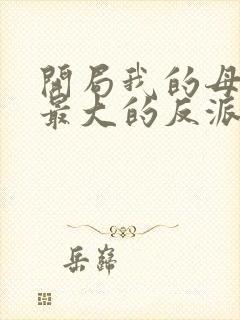 開局我的母
最大的反派
岳巍